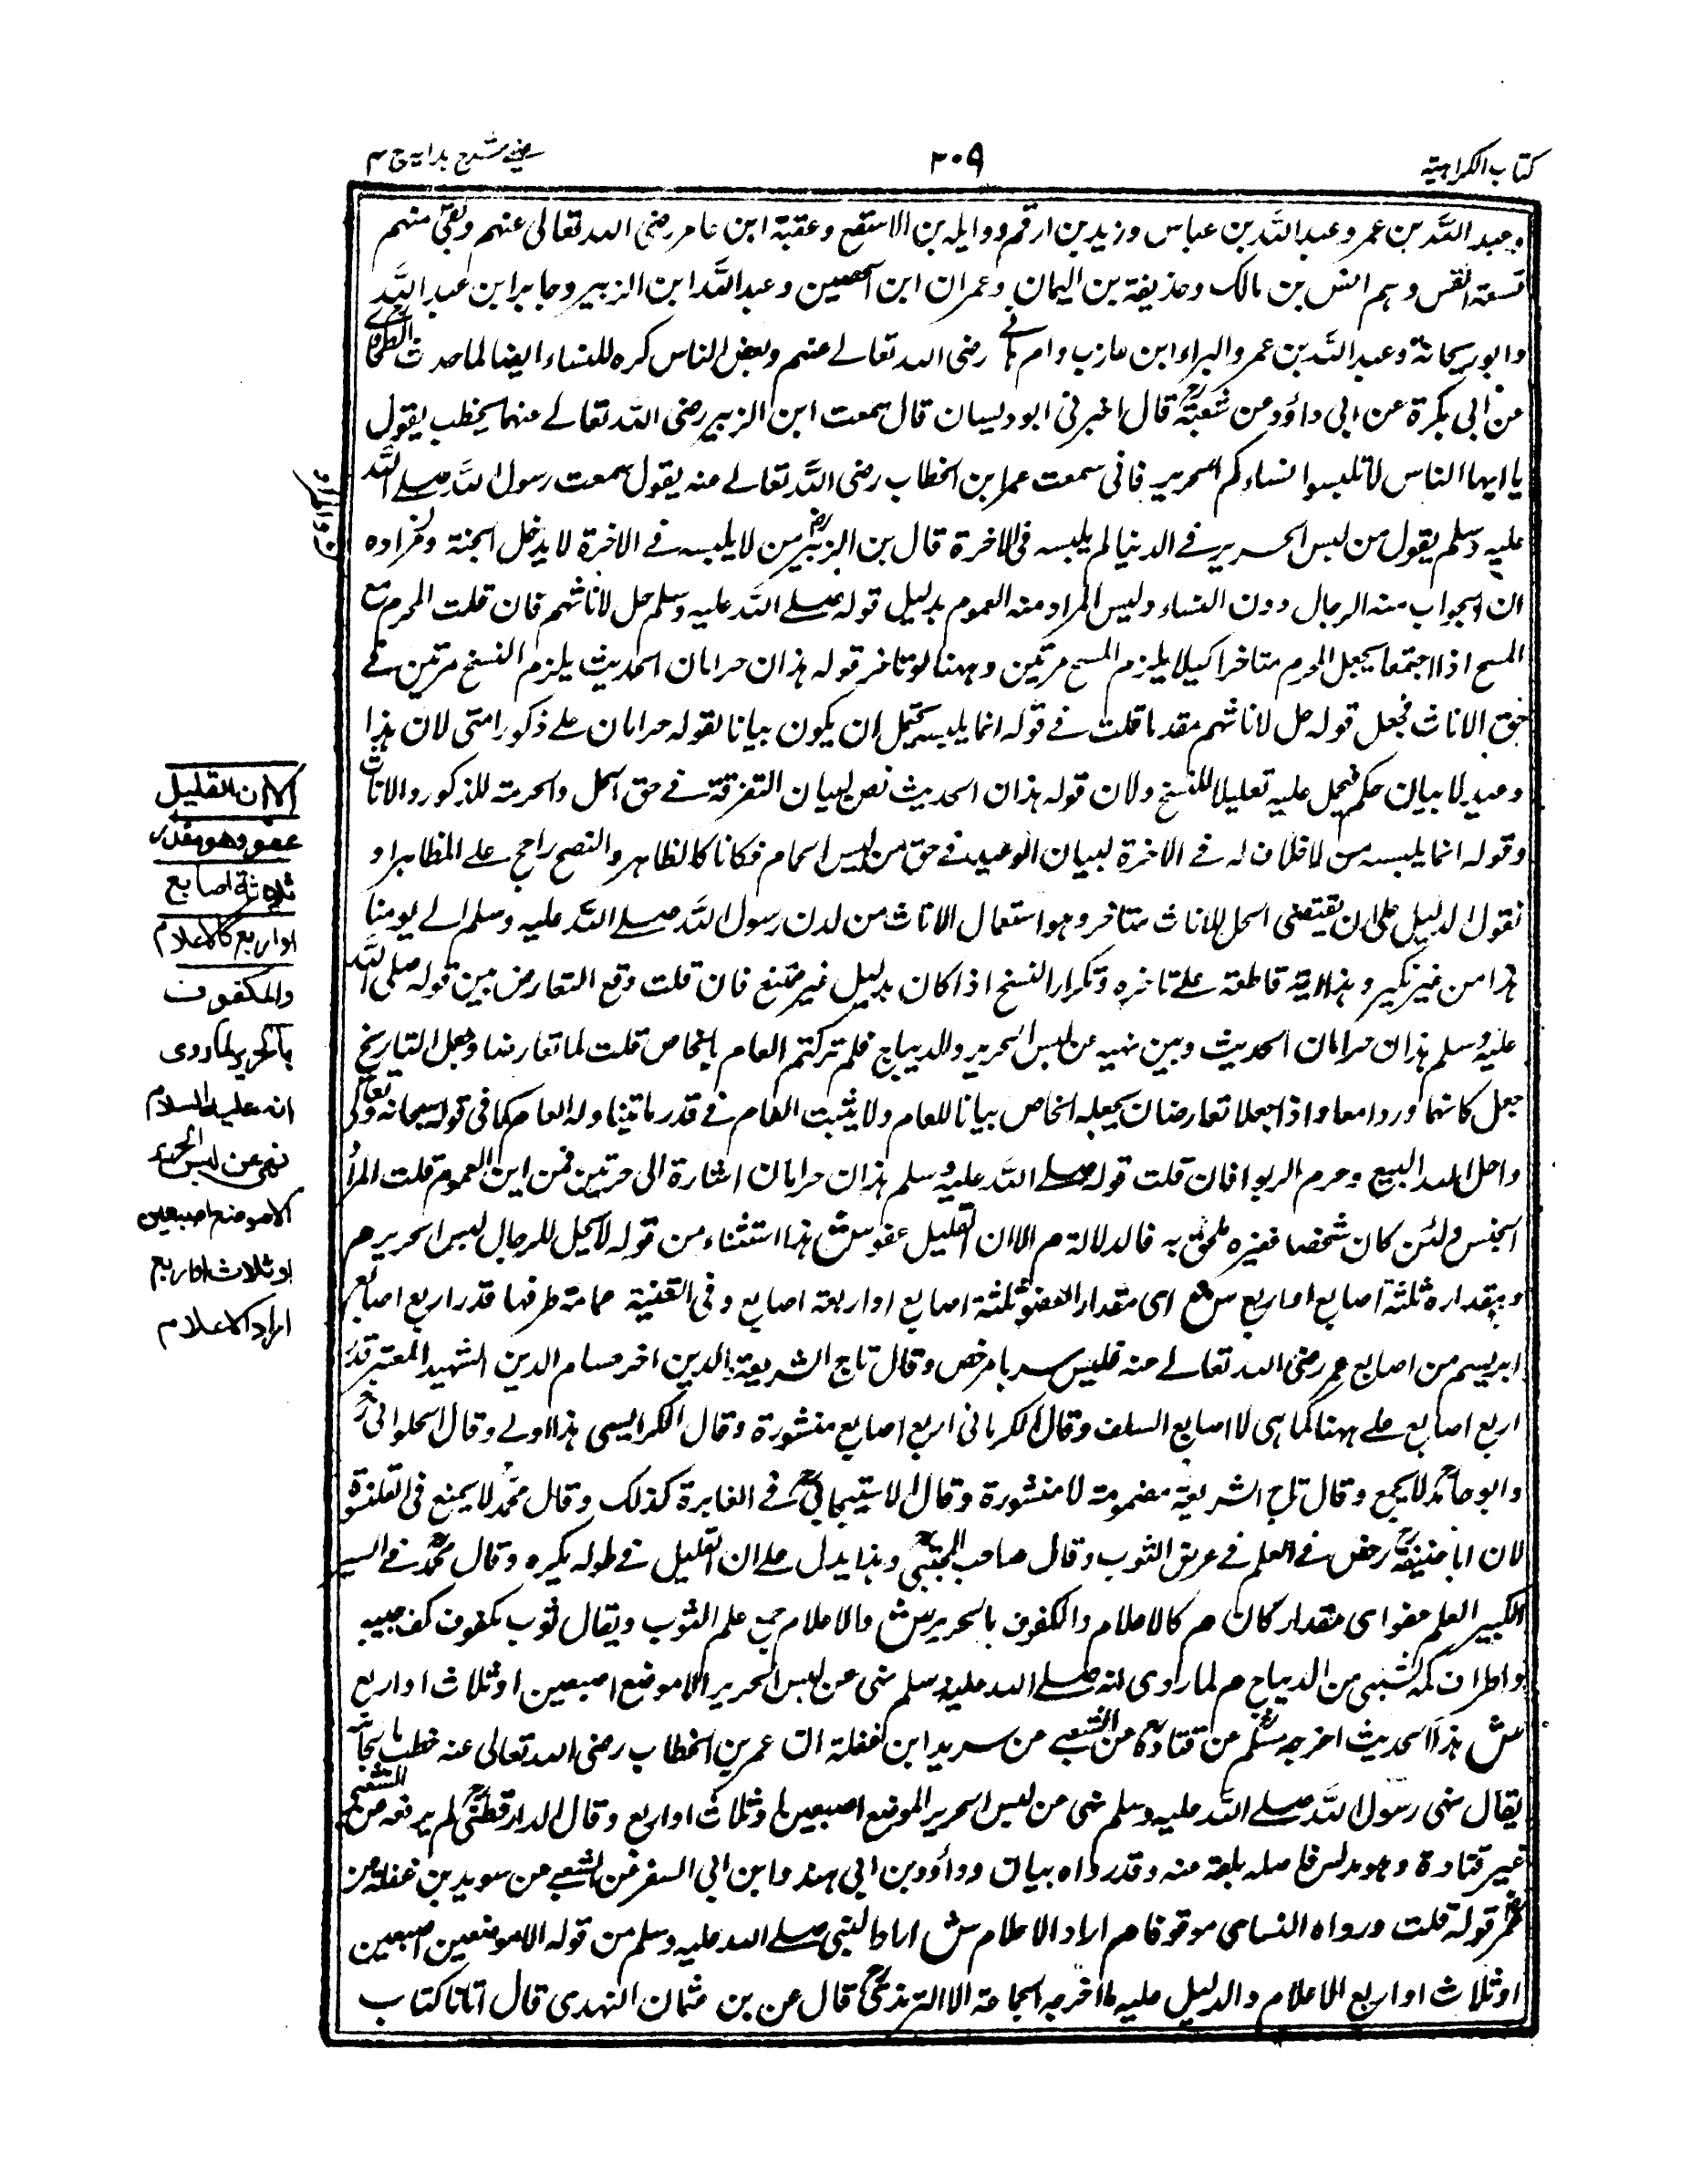 كتاب الكراهية
٢٠٩
عينى شرح هداية ج ٤
وعبد الله بن عمر وعبد الله بن عباس وزيد بن ارقم ووايله بن الاسقع وعقبة ابن عامر رضى الله تعالى عنهم وبقى منهم
تسعة انفس وهم انس بن مالك وحذيفة بن اليمان وعمران ابن الحصين وعبد الله ابن الزبير وجابر ابن عبد الله
وابو ريحانة وعبد الله بن عمر والبراء ابن عازب وام هانى رضى الله تعالى عنهم وبعض الناس كره للنساء ايضا لما حدث الطحاوى
عن ابى بكرة عن ابى داؤد عن شعبة قال اخبرنى ابو ديسان قال سمعت ابن الزبير رضى الله تعالى عنهما يخطب يقول
يا ايها الناس لا تلبسوا نساءكم الحرير فانى سمعت عمر بن الخطاب رضى الله تعالى عنه يقول سمعت رسول الله صلى الله
عليه وسلم يقول من لبس الحرير فى الدنيا لم يلبسه فى الاخرة قال بن الزبير من لا يلبسه فى الاخرة لا يدخل الجنة
ان الجواب منه الرجال دون النساء وليس المراد منه العموم بدليل قوله صلى الله عليه وسلم حل لاناثهم فان قلت المحرم مع
المبيح اذا اجتمعا يجعل المحرم متاخرا كيلا يلزم النسخ مرتين وههنا لو تاخر قوله هذان حرامان الحديث يلزم النسخ مرتين فى
حق الاناث فجعل قوله حل لاناثهم مقدما قلت فى قوله انما يلبسه يحتمل ان يكون بيانا لقوله حرامان على ذكور امتى لان هذا
وعيد لا بيان حكم فيحمل عليه تعليلا للنسخ ولان قوله هذان الحديث نص لبيان التفرقة فى حق الحل والحرمة للذكور والاناث
وقوله انما يلبسه من لا خلاق له فى الاخرة لبيان الوعيد فى حق من لبس الحرام فكانا كالظاهر والنص راجح على الظاهر او
نقول الدليل على ان يقتضى الحل للاناث متاخر وهو استعمال الاناث من لدن رسول الله صلى الله عليه وسلم الى يومنا
هذا من غير نكير وهذا آية قاطعة على تاخره وتكرار النسخ اذا كان بدليل غير ممتنع فان قلت وقع التعارض بين قوله صلى الله
عليه وسلم هذان حرامان الحديث وبين نهيه عن لبس الحرير والديباج فلم تركتم العام بالخاص قلت لما تعارضا وجهل التاريخ
جعل كانهما وردا معا واذا جعلا تعارضان يجعله الخاص بيانا للعام ولا يثبت العام فى قدر ما تناوله العام كما فى قوله سبحانه وتعالى
واحل الله البيع وحرم الربوا فان قلت قوله صلى الله عليه وسلم هذان حرامان اشارة الى حرتين فمن اين العموم قلت المراد
الجنس ولئن كان شخصا فغيره ملحق به فالدلالة م الا ان القليل عفو ش هذا استثناء من قوله لا يحل للرجال لبس الحرير م
وبقداره ثلثة اصابع او اربع ش اى مقدار العفو ثلثة اصابع او اربعة اصابع وفى القنية عمامة طرفها قدر اربع اصابع
ابريسم من اصابع عمر رضى الله تعالى عنه فليس بها مرخص وقال تاج الشريعة بالدين اخر حسام الدين الشهيد المعتبر قدر
اربع اصابع على ههنا كما هى لا اصابع السلف وقال الكرمانى اربع اصابع منشورة وقال الكرابيسى هذا اولى وقال الحلوانى
وابو حامد لا يجمع وقال تاج الشريعة مضمومة لا منشورة وقال الاسبيجابى فى الغابرة كذلك وقال محمد لا يمنع فى القلنسوة
لان ابا حنيفة رخص فى العلم فى عرض الثوب وقال صاحب المجتبى وبذا يدل على ان القليل فى طوله يكره وقال محمد فى السير
الكبير العلم عفو اى مقدار كان م كالاعلام والمكفوف بالحرير ش والاعلام جمع علم الثوب ويقال ثوب مكفوف كف جيبه
واطراف كمه بشئ من الديباج م لما روى انه صلى الله عليه وسلم نهى عن لبس الحرير الا موضع اصبعين او ثلاث او اربع
ش هذا الحديث اخرجه مسلم عن قتادة عن الشعبى عن سويد ابن غفلة ان عمر بن الخطاب رضى الله تعالى عنه خطب بالجابية
فقال نهى رسول الله صلى الله عليه وسلم نهى عن لبس الحرير الا موضع اصبعين او ثلاث او اربع وقال الدارقطنى لم يرفعه عن الشعبى
غير قتادة وهو مدلس فلعله بلغه منه وقد رواه بيان وداؤد بن ابى هند وابن ابى السفر عن الشعبى عن سويد بن غفلة عن
عمر قوله قلت ورواه النسائى موقوفا م اراد الاعلام ش اراد النبى صلى الله عليه وسلم من قوله الا موضعين اصبعين
او ثلاث او اربع الاعلام والدليل عليه ما اخرجه الجماعة الا الترمذى قال عن بن عثمان النهدى قال اتانا كتاب
الا ان القليل
عفو وهو مقدار
ثلاثة اصابع
او اربع كالاعلام
والمكفوف
بالحرير لما روى
انه عليه السلام
نهى عن لبس الحرير
الا موضع اصبعين
او ثلاث او اربع
اراد الاعلام